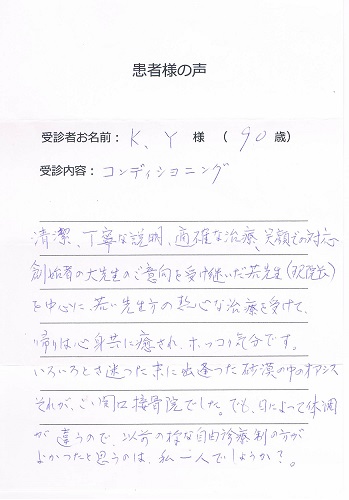 患者様の声
受診者お名前：K、Y 様 （ 90 歳）
受診内容：コンディショニング
清潔、丁寧な説明、適確な治療、笑顔での対応
創始者の大先生のご意向を受け継いだ若先生(現院長)
を中心に、若い先生方の熱心な治療を受けて、
帰りは心身共に癒され、ホッコリ気分です。
いろいろとさ迷った末に出逢った砂漠の中のオアシス
それが、ごい関口接骨院でした。でも、日によって体調
が違うので、以前の様な自由診療制の方が
よかったと思うのは、私一人でしょうか?。